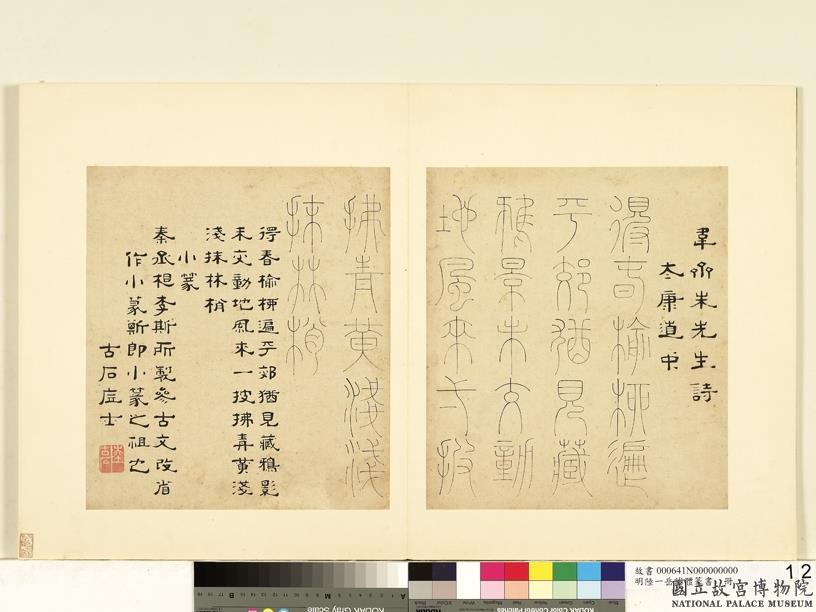 韋齋朱先生詩
太康道中
得春榆柳遍
平郊猶見藏
鴉景未交動
地風來弌披
拂青黃淺淺
抹林梢
得春榆柳遍平郊猶見藏鴉影
未交動地風來一披拂青黃淺
淺抹林梢
小篆
秦丞相李斯所製參古文改省
作小篆斯即小篆之祖也
古石士
故書 000641N000000000
明陸一岳體篆書 冊
12
國立故宮博物院
NATIONAL PALACE MUSEUM